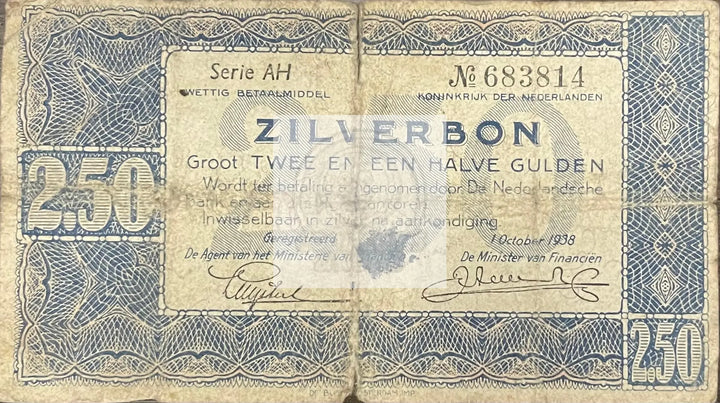 Serie AH
№ 683814
WETTIG BETAALMIDDEL
KONINKRIJK DER NEDERLANDEN
ZILVERBON
Groot TWEE EN EEN HALVE GULDEN
Wordt ter betaling aangenomen door De Nederlandsche
Bank en aan alle kantoren.
Inwisselbaar in zilver na aankondiging.
Geregistreerd
1 October 1938
De Agent van het Ministerie van
De Minister van Financiën
2.50
250
2.50